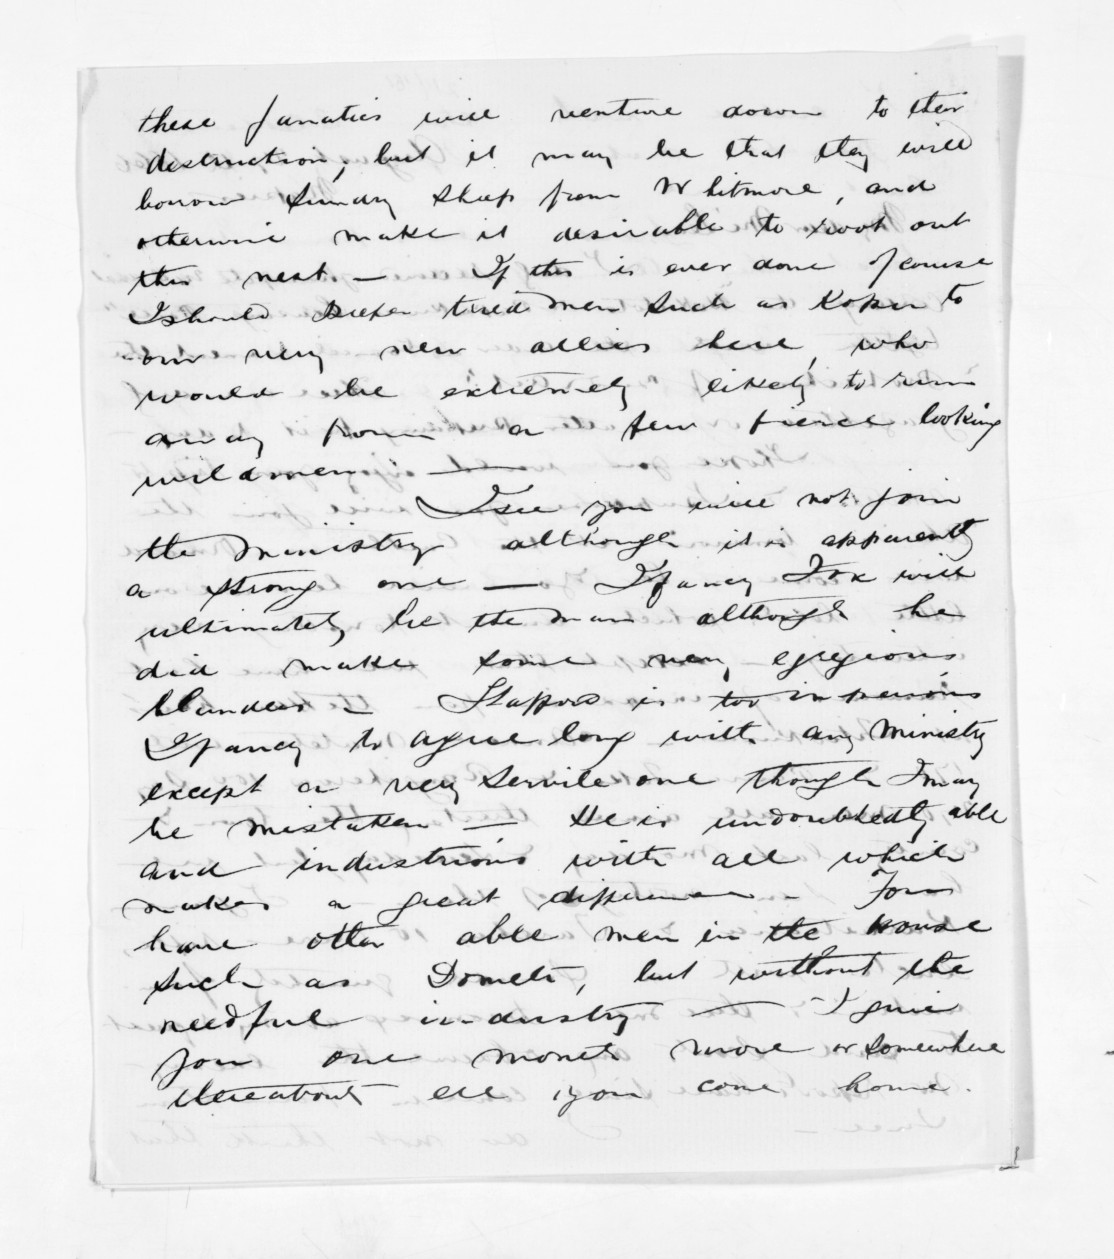 these fanatics will venture down to their
destruction, but it may be that they will
borrow sundry sheep from Whitmore, and
otherwise make it desirable to root out
this nest — If this is ever done of course
I should prefer tried men such as Kopu to
our very new allies here, who
would be extremely likely to run
away from a few fierce looking
wild men —
I see you will not join
the Ministry although it is apparently
a strong one — I fancy Fox will
ultimately be the man although he
did make some very egregious
blunders — Stafford is too imperious
I fancy to agree long with any Ministry
except a very servile one though I may
be mistaken — He is undoubtedly able
and industrious with all which
makes a great difference — You
have other able men in the House
such as Domett, but without the
needful industry — I give
you one month more or somewhere
thereabout ere you come home.